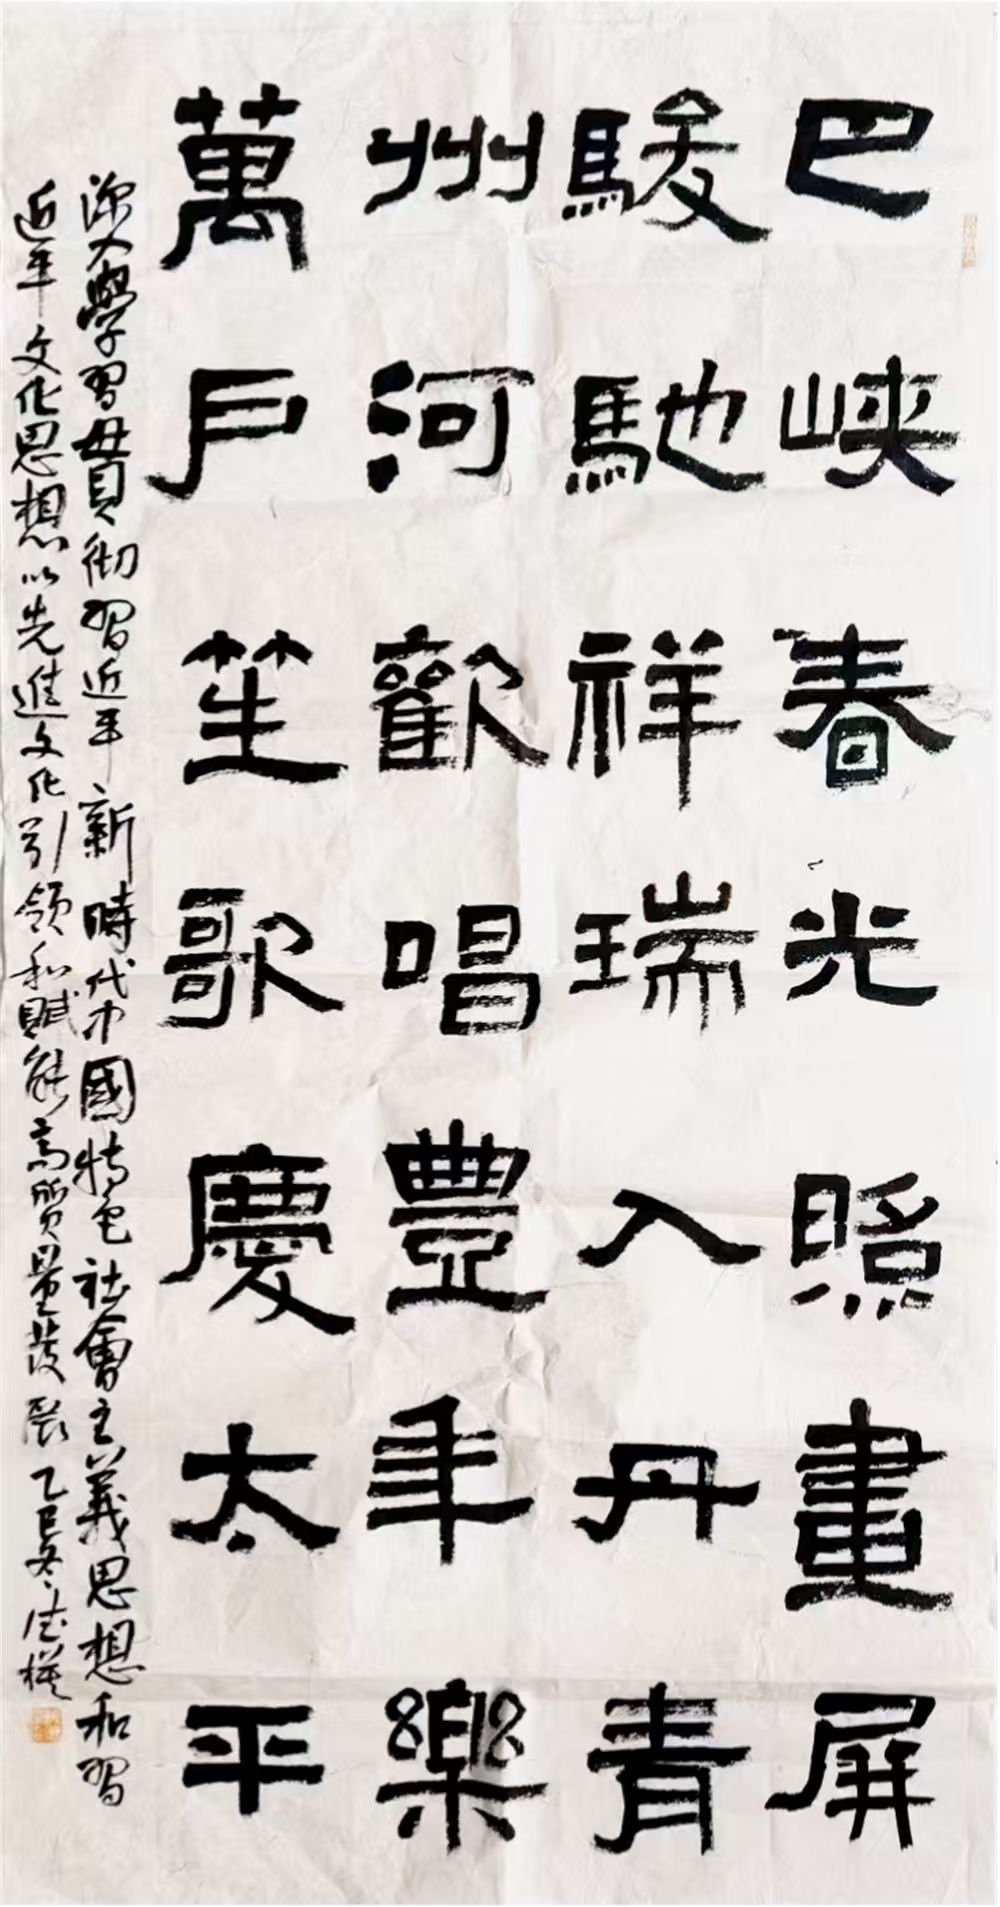 巴峽春光照畫屏
駿馳祥瑞入丹青
州河歡唱豐年樂
萬戶笙歌慶太平
深入學習貫彻習近平新時代中國特色社會主義思想和習
近平文化思想以先進文化引領和賦能高質量發展乙巳冬